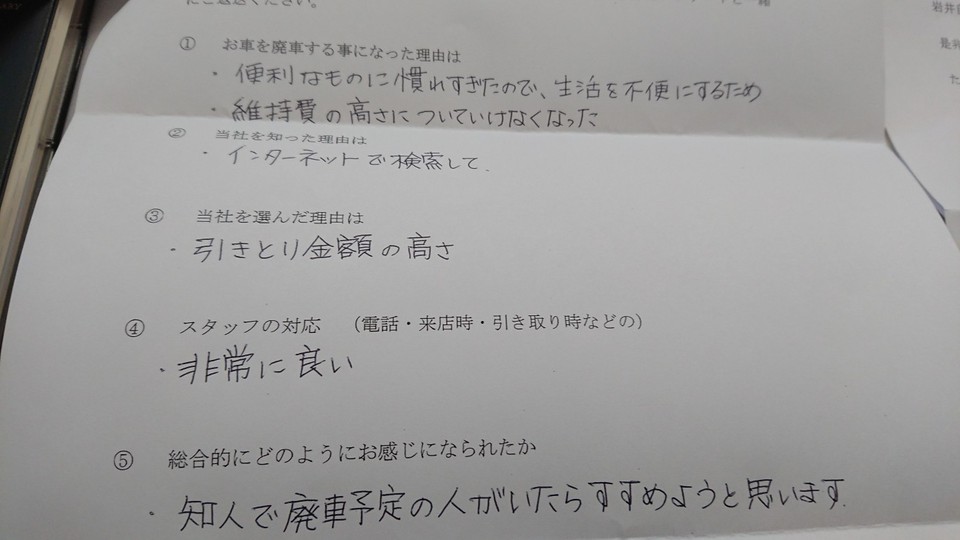 にご返送ください。
① お車を廃車する事になった理由は
・便利なものに慣れすぎたので、生活を不便にするため
・維持費の高さについていけなくなった
② 当社を知った理由は
・インターネットで検索して.
③ 当社を選んだ理由は
・引きとり金額の高さ
④ スタッフの対応 (電話・来店時・引き取り時などの)
・非常に良い
⑤ 総合的にどのようにお感じになられたか
・知人で廃車予定の人がいたらすすめようと思います.